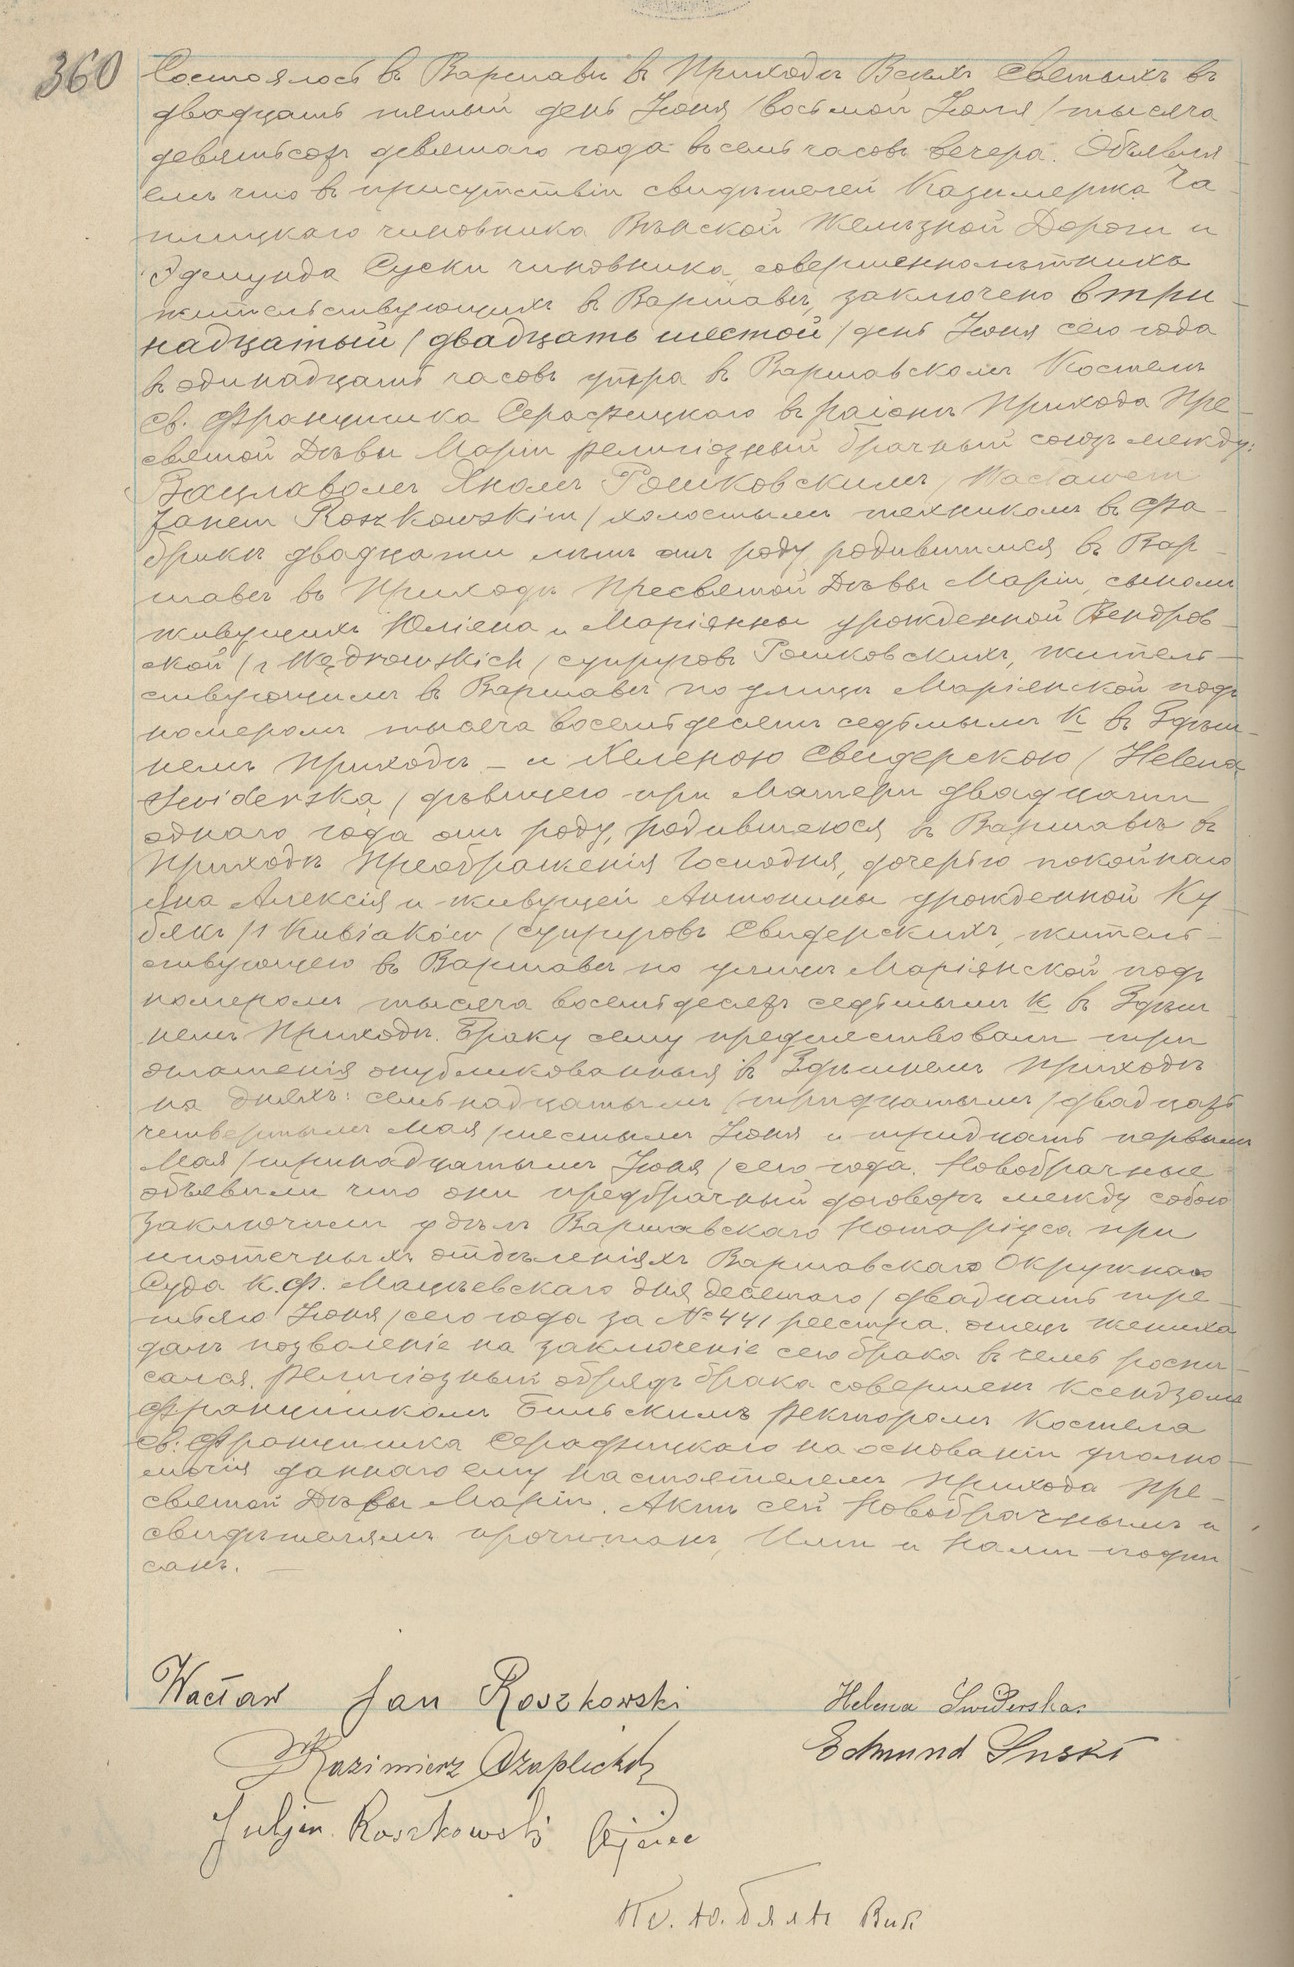 360
Состоялось въ Варшавѣ въ Приходѣ Всѣхъ Святыхъ въ
двадцать пятый день Іюня /восьмой Іюля/ тысяча
девятьсотъ девятаго года въ семь часовъ вечера. Объявля-
емъ что въ присутствіи свидѣтелей Казимержа Ча-
плицкаго чиновника Вѣнской Желѣзной Дороги и
Эдмунда Суски чиновника, совершеннолѣтнихъ
жительствующихъ въ Варшавѣ, заключено втри-
надцатый /двадцать шестой/ день Іюня сего года
въ одинадцать часовъ утра въ Варшавскомъ Костелѣ
Св. Францишка Серафицкаго въ раіонѣ Прихода Пре-
святой Дѣвы Маріи религіозный брачный союзъ между:
Вацлавомъ Яномъ Рошковскимъ /Wacławem
Janem Roszkowskim/ холостымъ техникомъ въ фа-
брикѣ двадцати лѣтъ отъ роду, родившимся въ Вар-
шавѣ въ Приходѣ Пресвятой Дѣвы Маріи, сыномъ
живущихъ Юліана и Маріянны урожденной Вендров-
ской /z Wędrowskich/ супруговъ Рошковскихъ, житель-
ствующимъ въ Варшавѣ по улицѣ Маріянской подъ
номеромъ тысяча восемьдесятъ седьмымъ к въ Здѣш-
немъ Приходѣ – и Хеленою Свидерскою /Helena
Świderska/ дѣвицею при Матери двадцати
однаго года отъ роду, родившеюся въ Варшавѣ въ
Приходѣ Преображенія Господня, дочерью покойнаго
Яна Алексія и живущей Антонины урожденной Ку-
бякъ /z Kubiaków/ супруговъ Свидерскихъ, житель-
ствующею въ Варшавѣ по улицѣ Маріянской подъ
номеромъ тысяча восемьдесятъ седьмымъ к въ Здѣш-
немъ Приходѣ. Браку сему предшествовали три
оглашенія опубликованныя въ Здѣшнемъ Приходѣ
на дняхъ: семьнадцатымъ /тридцатымъ/ двадцать
четвертымъ Мая /шестымъ Іюня и тридцать первымъ
Мая /тринадцатымъ Іюня/ сего года. Новобрачные
объявили что они предбрачный договоръ между собою
заключили у дѣлъ Варшавскаго Нотаріуса при
ипотечныхъ отдѣленіяхъ Варшавскаго Окружнаго
Суда К. Ф. Мацѣевскаго дня десятаго /двадцать тре-
тьяго Іюня/ сего года за № 441 реестра. Отецъ жениха
далъ позволеніе на заключеніе сего брака въ чемъ роспи-
сался. Религіозный обрядъ брака совершенъ Ксендзомъ
Францишкомъ Бильскимъ Ректоромъ Костела
Св. Францишка Серафицкаго на основаніи уполно-
мочія даннаго ему Настоятелемъ Прихода Пре-
святой Дѣвы Маріи. Актъ сей Новобрачнымъ и
свидѣтелямъ прочитанъ, Ими и Нами подпи-
санъ. –
Wacław Jan Roszkowski Helena Świderska
Kazimierz Czaplicki Edmund Suski
Juljan Roszkowski Ojciec